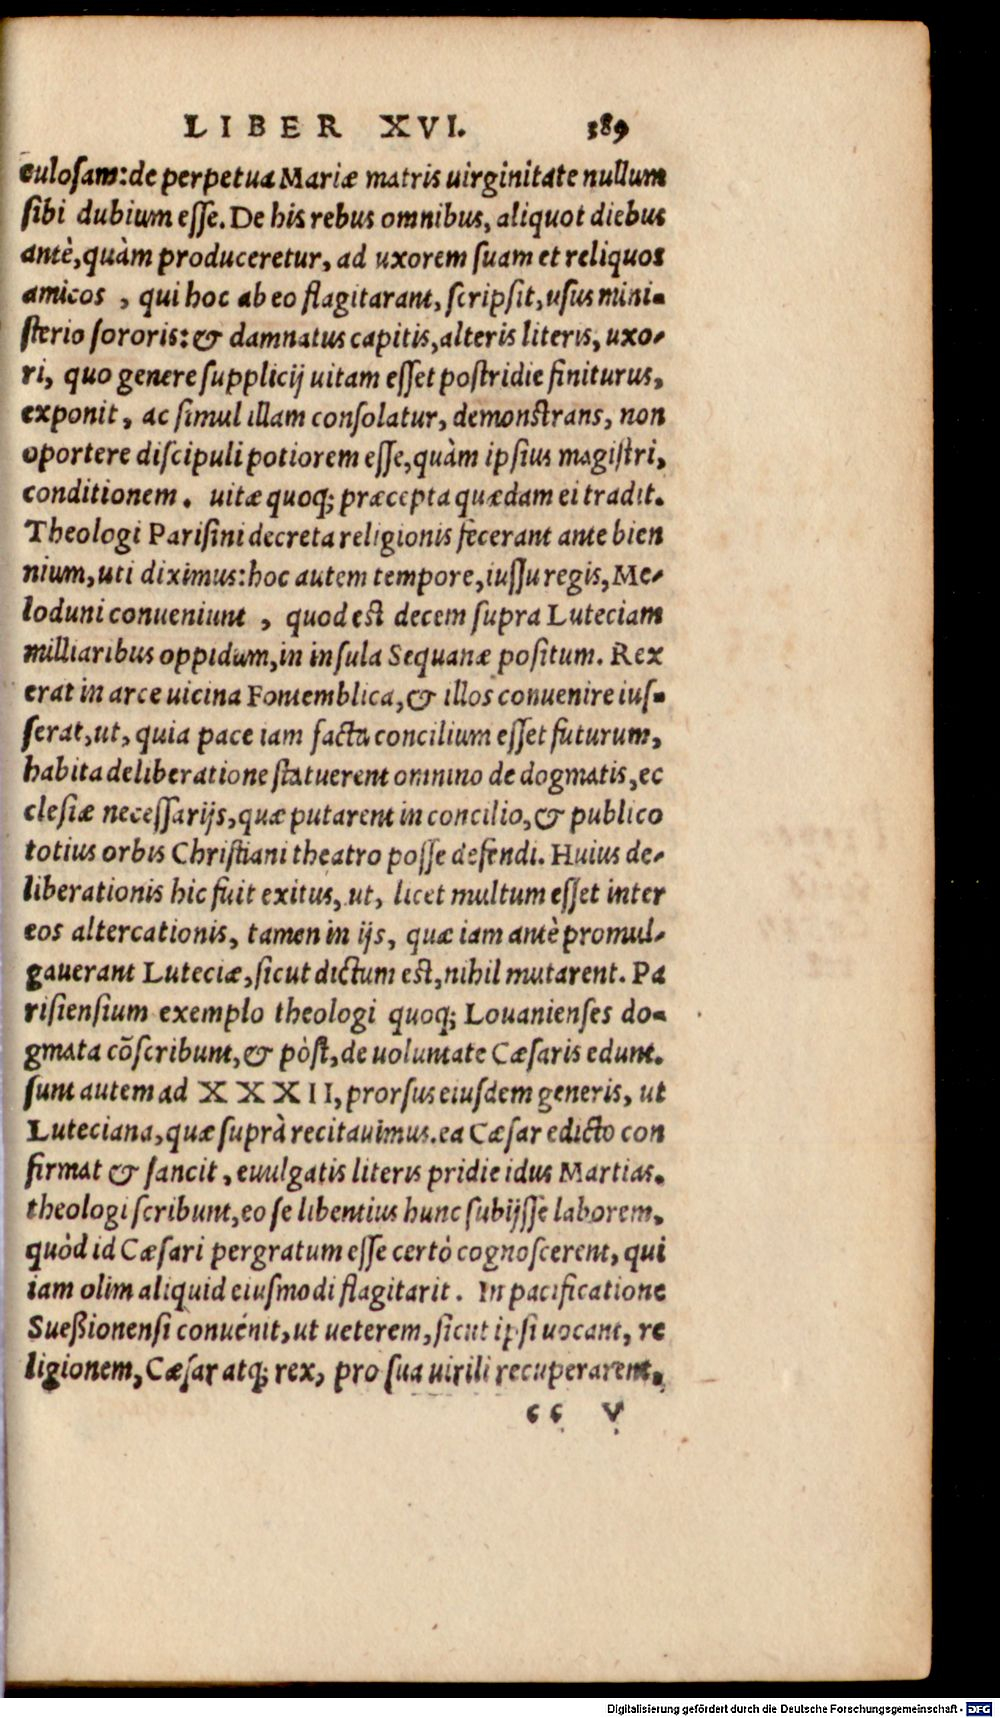 LIBER XVI. 389
culosam: de perpetua Mariæ matris uirginitate nullum
sibi dubium esse. De his rebus omnibus, aliquot diebus
antè, quàm produceretur, ad uxorem suam et reliquos
amicos , qui hoc ab eo flagitarant, scripsit, usus mini-
sterio sororis: & damnatus capitis, alteris literis, uxo-
ri, quo genere supplicij uitam esset postridie finiturus,
exponit, ac simul illam consolatur, demonstrans, non
oportere discipuli potiorem esse, quàm ipsius magistri,
conditionem. uitæ quoq; præcepta quædam ei tradit.
Theologi Parisini decreta religionis fecerant ante bien
nium, uti diximus: hoc autem tempore, iussu regis, Me-
loduni conueniunt , quod est decem supra Luteciam
milliaribus oppidum, in insula Sequanæ positum. Rex
erat in arce uicina Fontemblica, & illos conuenire ius-
serat, ut, quia pace iam facta concilium esset futurum,
habita deliberatione statuerent omnino de dogmatis, ec
clesiæ necessarijs, quæ putarent in concilio, & publico
totius orbis Christiani theatro posse defendi. Huius de-
liberationis hic fuit exitus, ut, licet multum esset inter
eos altercationis, tamen in ijs, quæ iam antè promul-
gauerant Luteciæ, sicut dictum est, nihil mutarent. Pa
risiensium exemplo theologi quoq; Louanienses do-
gmata cõscribunt, & pòst, de uoluntate Cæsaris edunt.
sunt autem ad XXXII, prorsus eiusdem generis, ut
Luteciana, quæ suprà recitauimus. ea Cæsar edicto con
firmat & sancit , euulgatis literis pridie idus Martias.
theologi scribunt, eo se libentius hunc subijsse laborem,
quòd id Cæsari pergratum esse certò cognoscerent, qui
iam olim aliquid eiusmodi flagitarit. In pacificatione
Sueßionensi conuenit, ut ueterem, sicut ipsi uocant, re
ligionem, Cæsar atq; rex, pro sua uirili recuperarent,
cc v
Digitalisierung gefördert durch die Deutsche Forschungsgemeinschaft - DFG